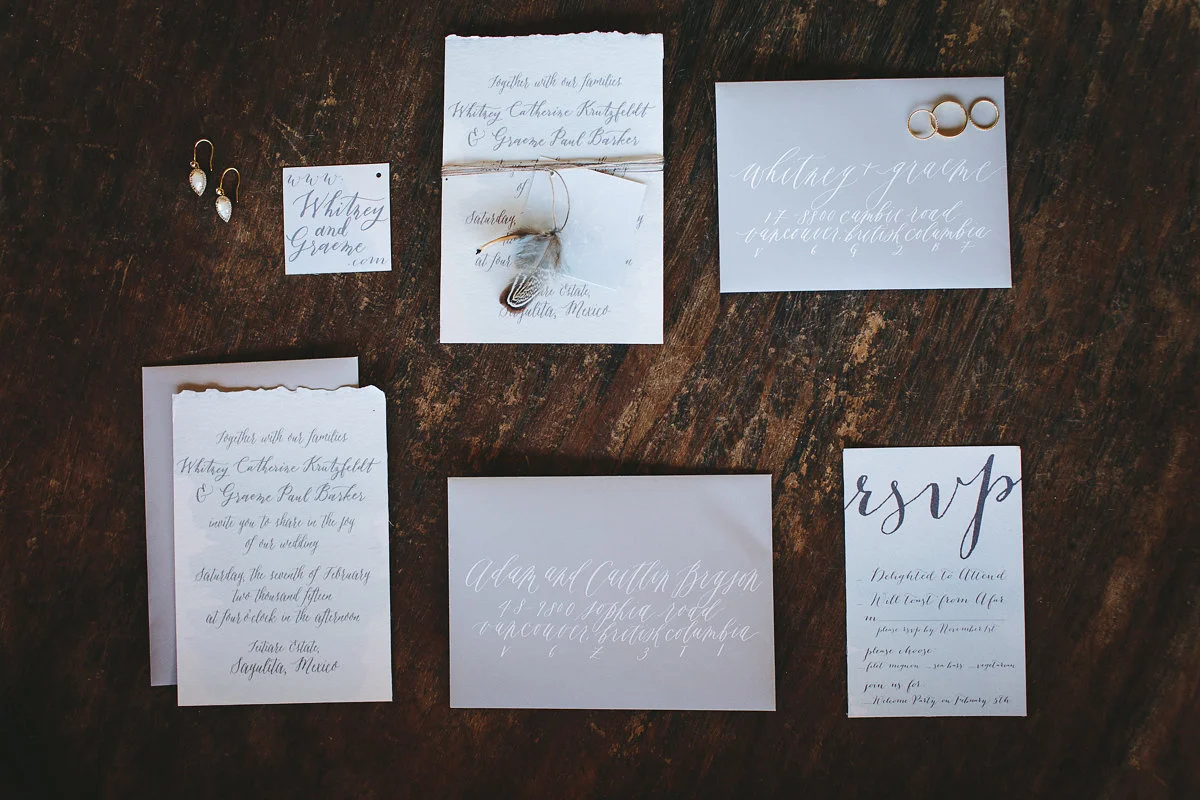 www.
Whitney
and
Graeme
.com
Together with our families
Whitney Catherine Krutzfeldt
& Graeme Paul Barker
of
Saturday,
at four
Estate,
Sayulita, Mexico
whitney + graeme
17-8800 cambie road
vancouver british columbia
Together with our families
Whitney Catherine Krutzfeldt
& Graeme Paul Barker
invite you to share in the joy
of our wedding
Saturday, the seventh of February
two thousand fifteen
at four o'clock in the afternoon
Estate,
Sayulita, Mexico
Adam and Caitlin Bryson
vancouver british columbia
rsvp
Delighted to Attend
Will toast from Afar
m
please rsvp by November 1st
please choose
filet mignon sea bass vegetarian
join us for
Welcome Party on February 5th